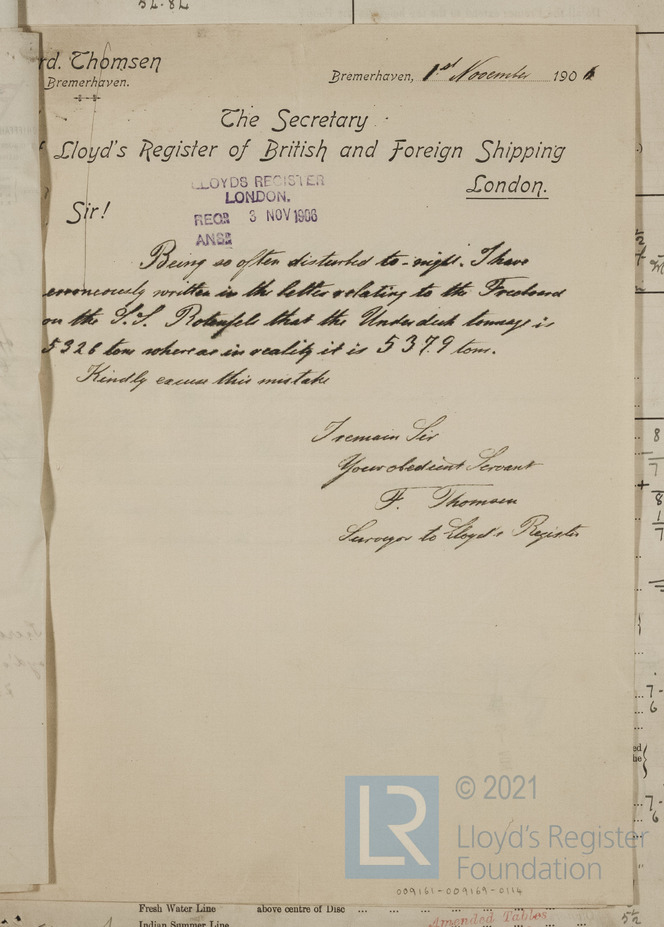 rd. Thomsen
Bremerhaven.
Bremerhaven, 1st November 1906
The Secretary
Lloyd's Register of British and Foreign Shipping
London.
LLOYDS REGISTER
LONDON.
RECD 3 NOV 1906
ANSD
Sir!
Being so often disturbed to-night. I have
erroneously written in the letter relating to the Freeboard
on the S.S. Rotenfels that the Underdeck tonnage is
5326 tons whereas in reality it is 5379 tons.
Kindly excuse this mistake
I remain Sir
Your obedient Servant
F. Thomsen
Surveyor to Lloyd's Register
© 2021
LR
Lloyd's Register
Foundation
009161-009169-0114
Fresh Water Line above centre of Disc
Indian Summer Line
Amended Tables
5½